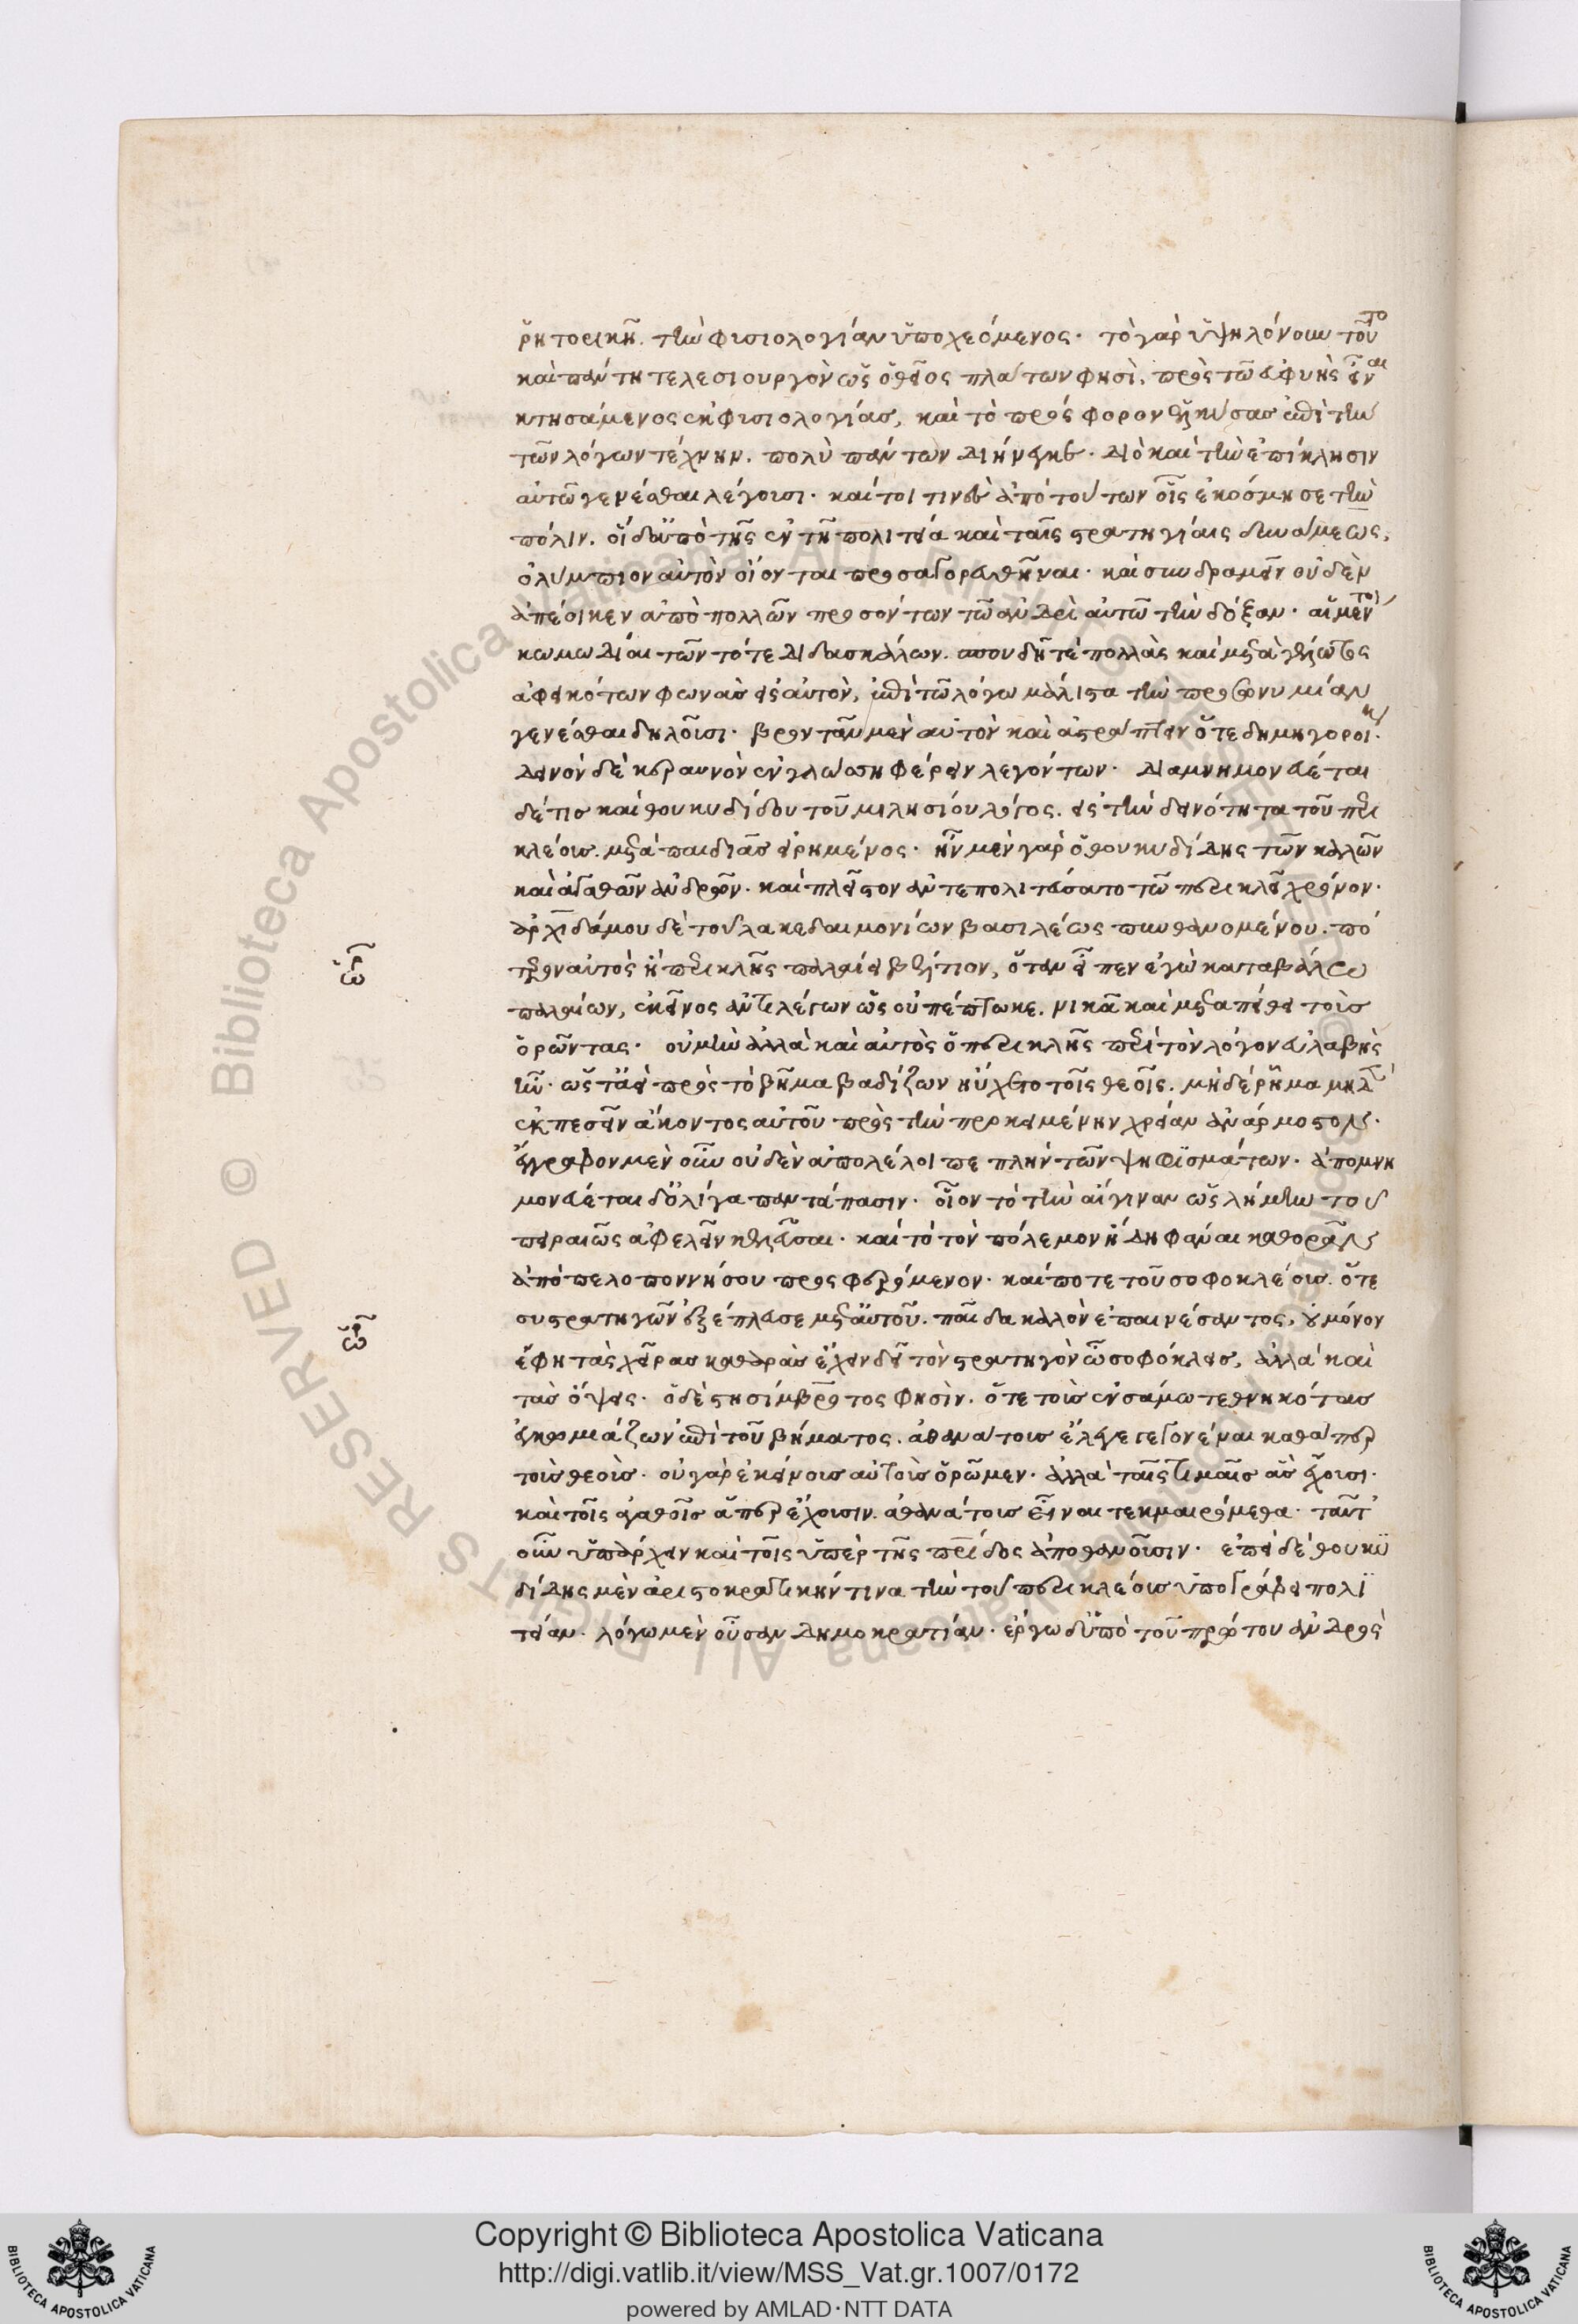 ῥητορικῇ. τὴν φυσιολογίαν ὑποχεόμενος· τὸ γὰρ ὑψηλόνουν τοῦτο
καὶ πάντη τελεσιουργὸν ὡς ὁ θεῖος πλάτων φησὶ, πρὸς τῶ εὐφυὴς εἶναι
κτησάμενος ἐκ φυσιολογίας, καὶ τὸ πρόσφορον ἑλκύσας ἐπὶ τὴν
τῶν λόγων τέχνην. πολὺ πάντων διήνεγκε· διὸ καὶ τὴν ἐπίκλησιν
αὐτῶ γενέσθαι λέγουσι· καίτοι τινὲς ἀπὸ τούτων οἷς ἐκόσμησε τὴν
πόλιν. οἱ δ' ὑπὸ τῆς ἐν τῆ πολιτεία καὶ ταῖς στρατηγίαις δυνάμεως,
ὀλύμπιον αὐτὸν οἴονται προσαγορευθῆναι· καὶ συνδραμεῖν οὐδὲν
ἀπέοικεν ἀπὸ πολλῶν προσόντων τῶ ἀνδρὶ αὐτῶ τὴν δόξαν· αἱ μέντοι
κωμωδίαι τῶν τότε διδασκάλων. σπουδῆ τὲ πολλὰς καὶ μετὰ γέλωτος
ἀφεικότων φωνὰς εἰς αὐτὸν, ἐπὶ τῶ λόγω μάλιστα τὴν προσωνυμίαν
γενέσθαι δηλοῦσι· βροντᾶν μὲν αὐτὸν καὶ ἀστράπτειν ὅτε δημηγοροίη·
δεινὸν δὲ κεραυνὸν ἐν γλώσση φέρειν λεγόντων· διαμνημονεύεται
δέ τις καὶ θουκυδίδου τοῦ μιλησίου λόγος. εἰς τὴν δεινότητα τοῦ περι
κλέους. μετὰ παιδιᾶς εἰρημένος· ἦν μὲν γὰρ ὁ θουκυδίδης τῶν καλῶν
καὶ ἀγαθῶν ἀνδρῶν· καὶ πλεῖστον ἀντεπολιτεύσατο τῶ περικλεῖ χρόνον·
ἀρχιδάμου δὲ τοῦ λακεδαιμονίων βασιλέως πυνθανομένου. πό
τερον αὐτὸς ἢ περικλῆς παλαίει βέλτιον, ὅταν εἶπεν ἐγὼ καταβάλω
παλαίων, ἐκεῖνος ἀντιλέγων ὡς οὐ πέπτωκε. νικᾶ καὶ μεταπείθει τοὺς
ὁρῶντας· οὐ μὴν ἀλλὰ καὶ αὐτὸς ὁ περικλῆς περὶ τὸν λόγον εὐλαβὴς
ἦν· ὥστ' ἀεὶ πρὸς τὸ βῆμα βαδίζων ηὔχετο τοῖς θεοῖς. μηδὲ ῥῆμα μηδὲν
ἐκπεσεῖν ἄκοντος αὐτοῦ πρὸς τὴν προκειμένην χρείαν ἀνάρμοστον·
ἔγγραφον μὲν οὖν οὐδὲν ἀπολέλοιπε πλὴν τῶν ψηφισμάτων· ἀπομνη
μονεύεται δ' ὀλίγα παντάπασιν· οἷον τὸ τὴν αἴγιναν ὡς λήμην τοῦ
πειραιῶς ἀφελεῖν κελεῦσαι· καὶ τὸ τὸν πόλεμον ἤδη φάναι καθορᾶν
ἀπὸ πελοποννήσου προσφερόμενον· καί ποτε τοῦ σοφοκλέους. ὅτε
συστρατηγῶν ἐξέπλευσε μετ' αὐτοῦ. παῖδα καλὸν ἐπαινέσαντος, οὐ μόνον
ἔφη τὰς χεῖρας καθαρὰς ἔχειν δεῖ τὸν στρατηγὸν ὦ σοφόκλεις, ἀλλὰ καὶ
τὰς ὄψεις· ὁ δὲ στησίμβροτος φησὶν. ὅτε τοὺς ἐν σάμω τεθνηκότας
ἐγκωμιάζων ἐπὶ τοῦ βήματος. ἀθανάτους ἔλεγε γεγονέναι καθάπερ
τοὺς θεούς· οὐ γὰρ ἐκείνους αὐτοὺς ὁρῶμεν· ἀλλὰ ταῖς τιμαῖς ἃς ἔχουσι·
καὶ τοῖς ἀγαθοῖς ἅπερ ἔχουσιν. ἀθανάτους εἶναι τεκμαιρόμεθα· ταῦτ'
οὖν ὑπάρχειν καὶ τοῖς ὑπὲρ τῆς πατρίδος ἀποθανοῦσιν· ἐπεὶ δὲ θουκυ
δίδης μὲν ἀριστοκρατικήν τινα τὴν τοῦ περικλέους ὑπογράφει πολι
τείαν· λόγω μὲν οὖσαν δημοκρατίαν· ἔργω δ' ὑπὸ τοῦ πρώτου ἀνδρὸς
ὡρ
ὡρ
Copyright © Biblioteca Apostolica Vaticana
http://digi.vatlib.it/view/MSS_Vat.gr.1007/0172
powered by AMLAD·NTT DATA